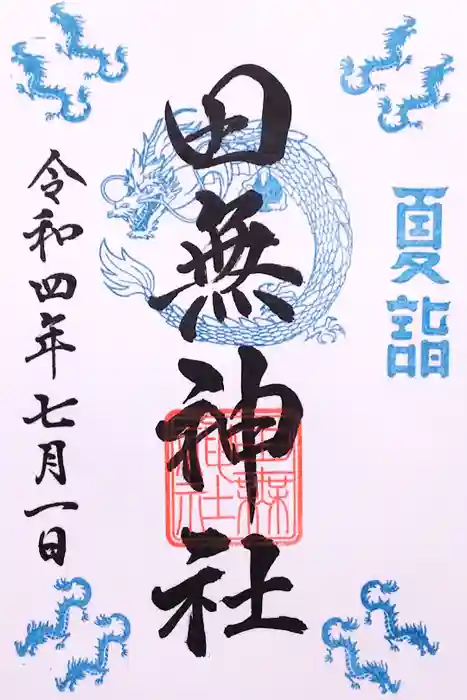 夏詣
田無神社
令和四年七月一日